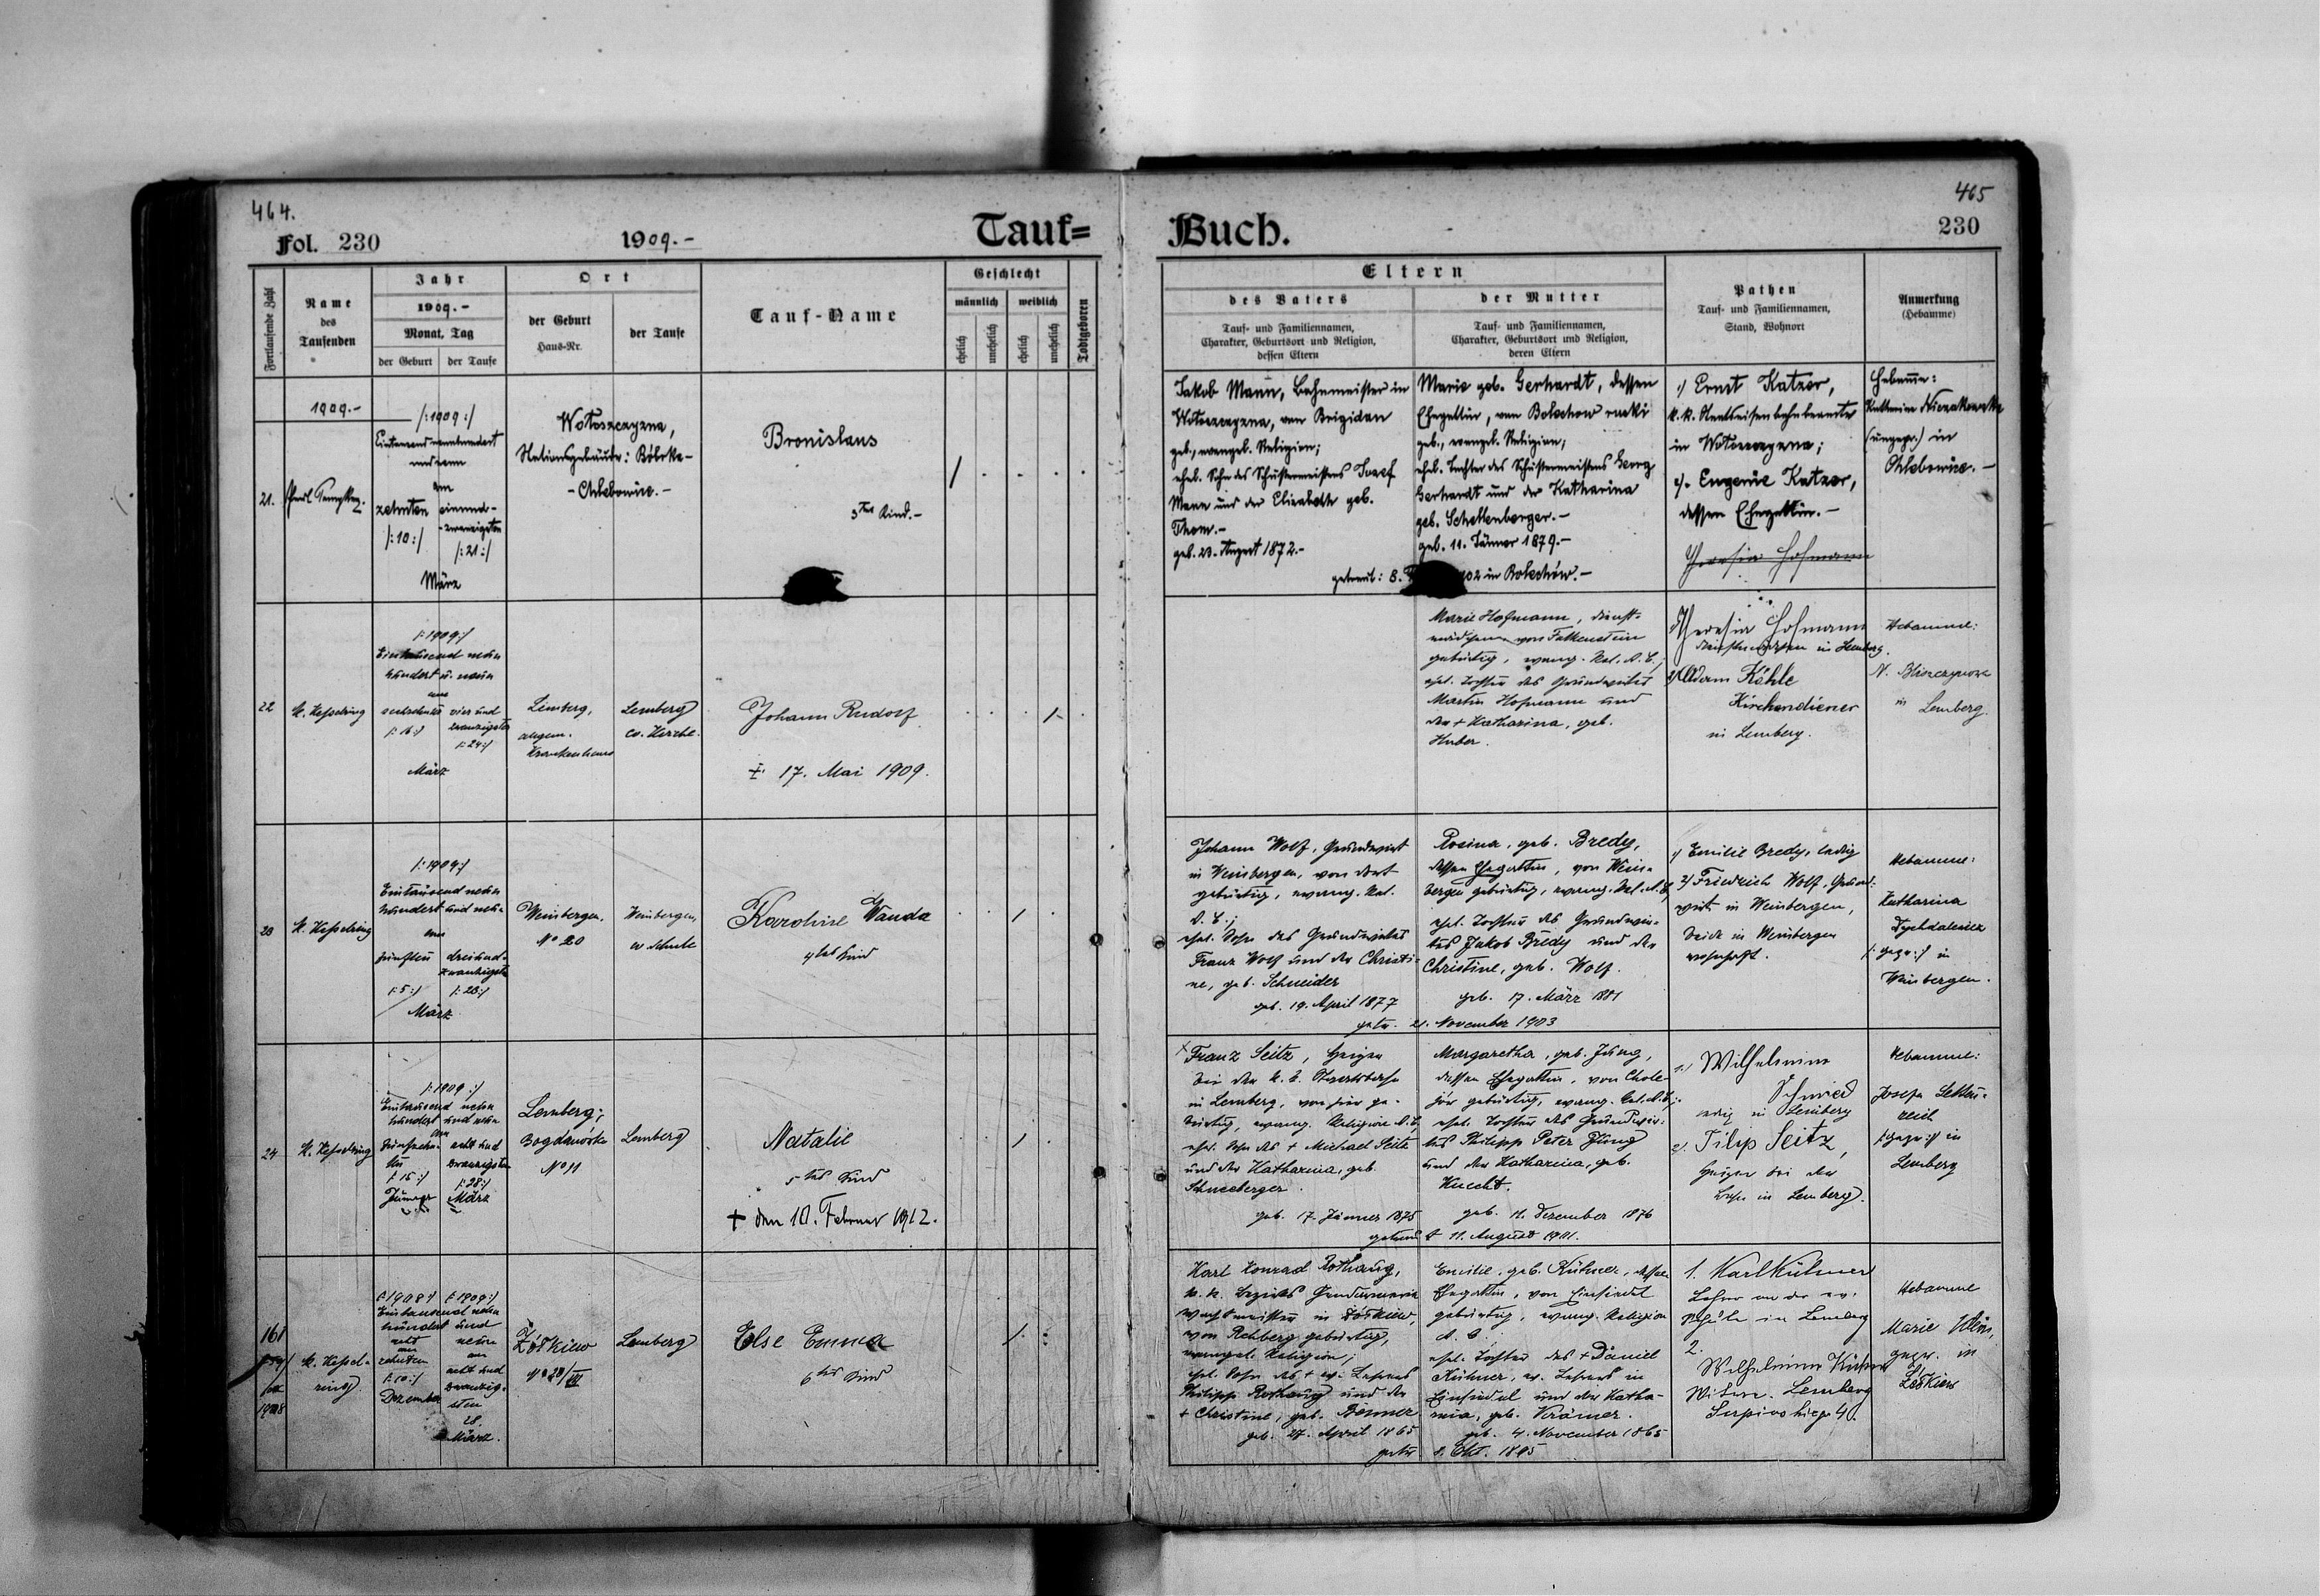 464.
Fol. 230
1909.-
Tauf=
Fortlaufende Zahl
Name
des
Taufenden
Jahr
1909.-
Monat, Tag
der Geburt
der Taufe
Ort
der Geburt
Haus-Nr.
der Taufe
Tauf-Name
Geschlecht
männlich
weiblich
ehelich
unehelich
ehelich
unehelich
Todtgeboren
1909.-
21.
/:1909:/
Eintausendneunhundert
und neun
am
zehnten
/:10:/
einund-
-zwanzigsten
/:21:/
März
Wołoszczyzna,
Stationsgebäude: Bóbrka-
-Chlebowice.-
Bronislaus
3tes Kind.-
22
K. Kesselring
/:1909:/
Eintausend neun
hundert u. neun
am
sechzehnten
/:16:/
vier und
zwanzigsten
/:24:/
März
Lemberg,
allgem.
Krankenhaus
Lemberg
ev. Kirche.
Johann Rudolf
17. Mai 1909.
23
K. Kesselring
/:1909:/
Eintausend neun
hundert und neun
am
fünften
/:5:/
dreiund-
zwanzigsten
/:23:/
März
Weinbergen,
No 20
Weinbergen,
ev. Schule
Karoline Wanda
4tes Kind
24
K. Kesselring
/:1909:/
Eintausend neun
hundert und neun
am
fünfzehn-
ten
/:15:/
Jänner
acht und
zwanzigsten
/:28:/
März
Lemberg,
Bogdanówka
No 11
Lemberg
Natalie
5tes Kind
† den 10. Februar 1912.
161
1908
K. Kessel-
ring
/:1908:/
/:1909:/
Eintausend neun
hundert und
acht
neun
am
zehnten
/:10:/
Dezember
am
acht und
zwanzig-
sten
28.
März.
Żółkiew
No 20/III
Lemberg
Else Emma
6tes Kind
465
Buch.
230
Eltern
des Vaters
Tauf- und Familiennamen,
Charakter, Geburtsort und Religion,
dessen Eltern
der Mutter
Tauf- und Familiennamen,
Charakter, Geburtsort und Religion,
deren Eltern
Pathen
Tauf- und Familiennamen,
Stand, Wohnort
Anmerkung
(Hebamme)
Jakob Mann, Bahnmeister in
Wołoszczyzna, von Brigidau
geb., evangel. Religion;
ehel. Sohn des Schustermeisters Josef
Mann und der Elisabeth geb.
Thom.-
geb. 23. August 1872.-
Marie geb. Gerhardt, dessen
Ehegattin, von Bolechow ruski
geb., evangel. Religion;
ehel. Tochter des Schustermeisters Georg
Gerhardt und der Katharina
geb. Schellenberger.-
geb. 11. Jänner 1879.-
getraut: 8.
in Bolechów.-
1) Ernst Katzer,
k.k. Staatseisenbahnbeamter
in Wołoszczyzna;
2). Eugenie Katzer,
dessen Ehegattin.-
Theresia Hofmann
Hebamme:
(ungepr.) in
Chlebowice.-
Marie Hofmann, Dienst-
mädchen von Falkenstein
gebürtig, evang. Rel. A.C.,
ehel. Tochter des Grundwirtes
Martin Hofmann und
der † Katharina, geb.
Huber.
1) Theresia Hofmann
Dienstmädchen in Lemberg.
2) Adam Köhle
Kirchendiener
in Lemberg.
Hebamme:
in Lemberg.
Johann Wolf, Grundwirt
in Weinbergen, von dort
gebürtig, evang. Rel.
A.C.;
ehel. Sohn des Grundwirtes
Franz Wolf und der Christi-
ne, geb. Schneider
geb. 19. April 1877
Rosina, geb. Bredy,
dessen Ehegattin, von Wein-
bergen gebürtig, evang. Rel. A.C.
ehel. Tochter des Grundwir-
tes Jakob Bredy und der
Christine, geb. Wolf.
geb. 17. März 1881
getr. 21. November 1903
1) Emilie Bredy, ledig
2) Friedrich Wolf, Grund-
wirt in Weinbergen,
beide in Weinbergen
wohnhaft.
Hebamme:
Katharina
/:gepr:/ in
Weinbergen.
Franz Seitz, Heizer
bei der k.k. Staatsbahn
in Lemberg, von hier ge-
bürtig, evang. Religion A.C.,
ehel. Sohn des † Michael Seitz
und der Katharina, geb.
Schneeberger.
geb. 17. Jänner 1875
Margaretha, geb. Jung,
dessen Ehegattin, von Chole-
jów gebürtig, evang. Rel. A.C.;
ehel. Tochter des Grundwir-
tes Philipp Peter Jung
und der Katharina, geb.
Knecht.
geb. 11. Dezember 1876
getraut 11. August 1901.
1.) Wilhelmine
Schmied
ledig in Lemberg
2. Filip Seitz,
Heizer bei der
Bahn in Lemberg.
Hebamme:
Josefa
/:gepr:/ in
Lemberg
Karl Konrad Rothaug,
k.k. Bezirks Gendarmerie
Wachtmeister in Żółkiew,
von Rehberg gebürtig,
evangel. Religion;
ehel. Sohn des † ev. Lehrers
Philipp Rothaug und der
† Christine, geb. Bömmer
geb. 27. April 1865
Emilie, geb. Kühner, dessen
Ehegattin, von Einsiedel
gebürtig, evang. Religion
A.C.
ehel. Tochter des † Daniel
Kühner, ev. Lehrers in
Einsiedel und der Katha-
rina, geb. Krämer.
geb. 4. November 1865
getr. 8. Okt. 1895
1. Karl Kühner
Lehrer an der ev.
Schule in Lemberg
2.
Wilhelmine Kühner
Witwe. Lemberg
Hebamme
Marie
gepr. in
Żółkiew